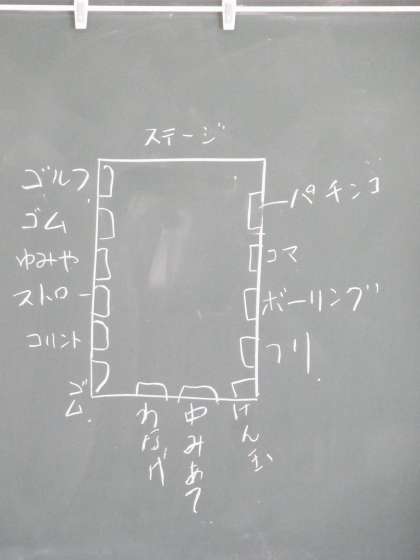 ステージ
ゴルフ
ゴム
ゆみや
ストロー
コリント
ゴム
パチンコ
コマ
ボーリング
わなげ
けん玉